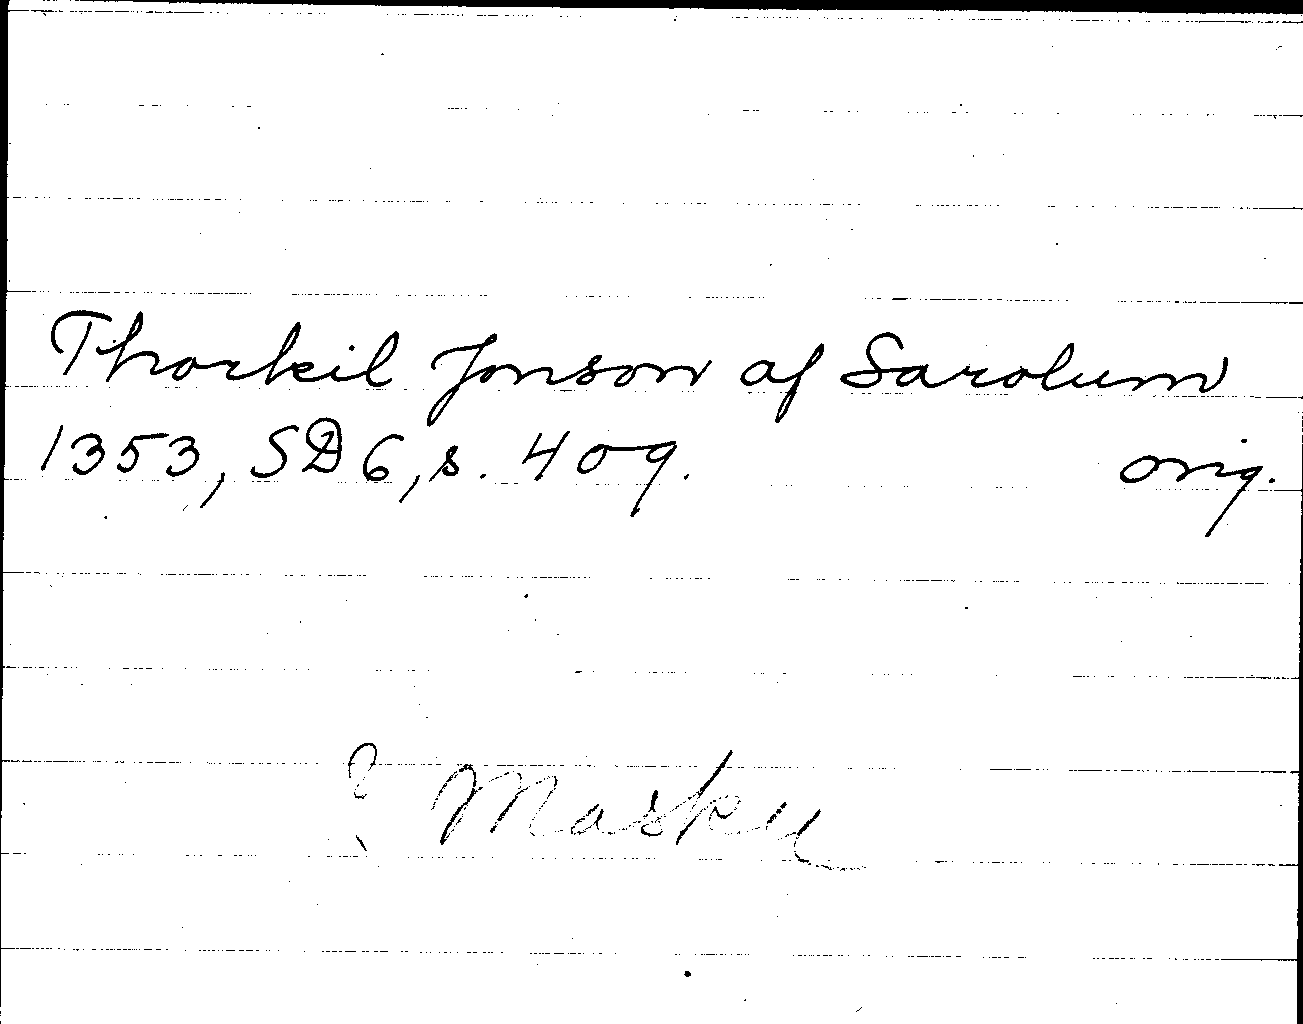 Thorkil Jonson af Sarolum
1353, SD 6, s. 409. orig.
? Masku